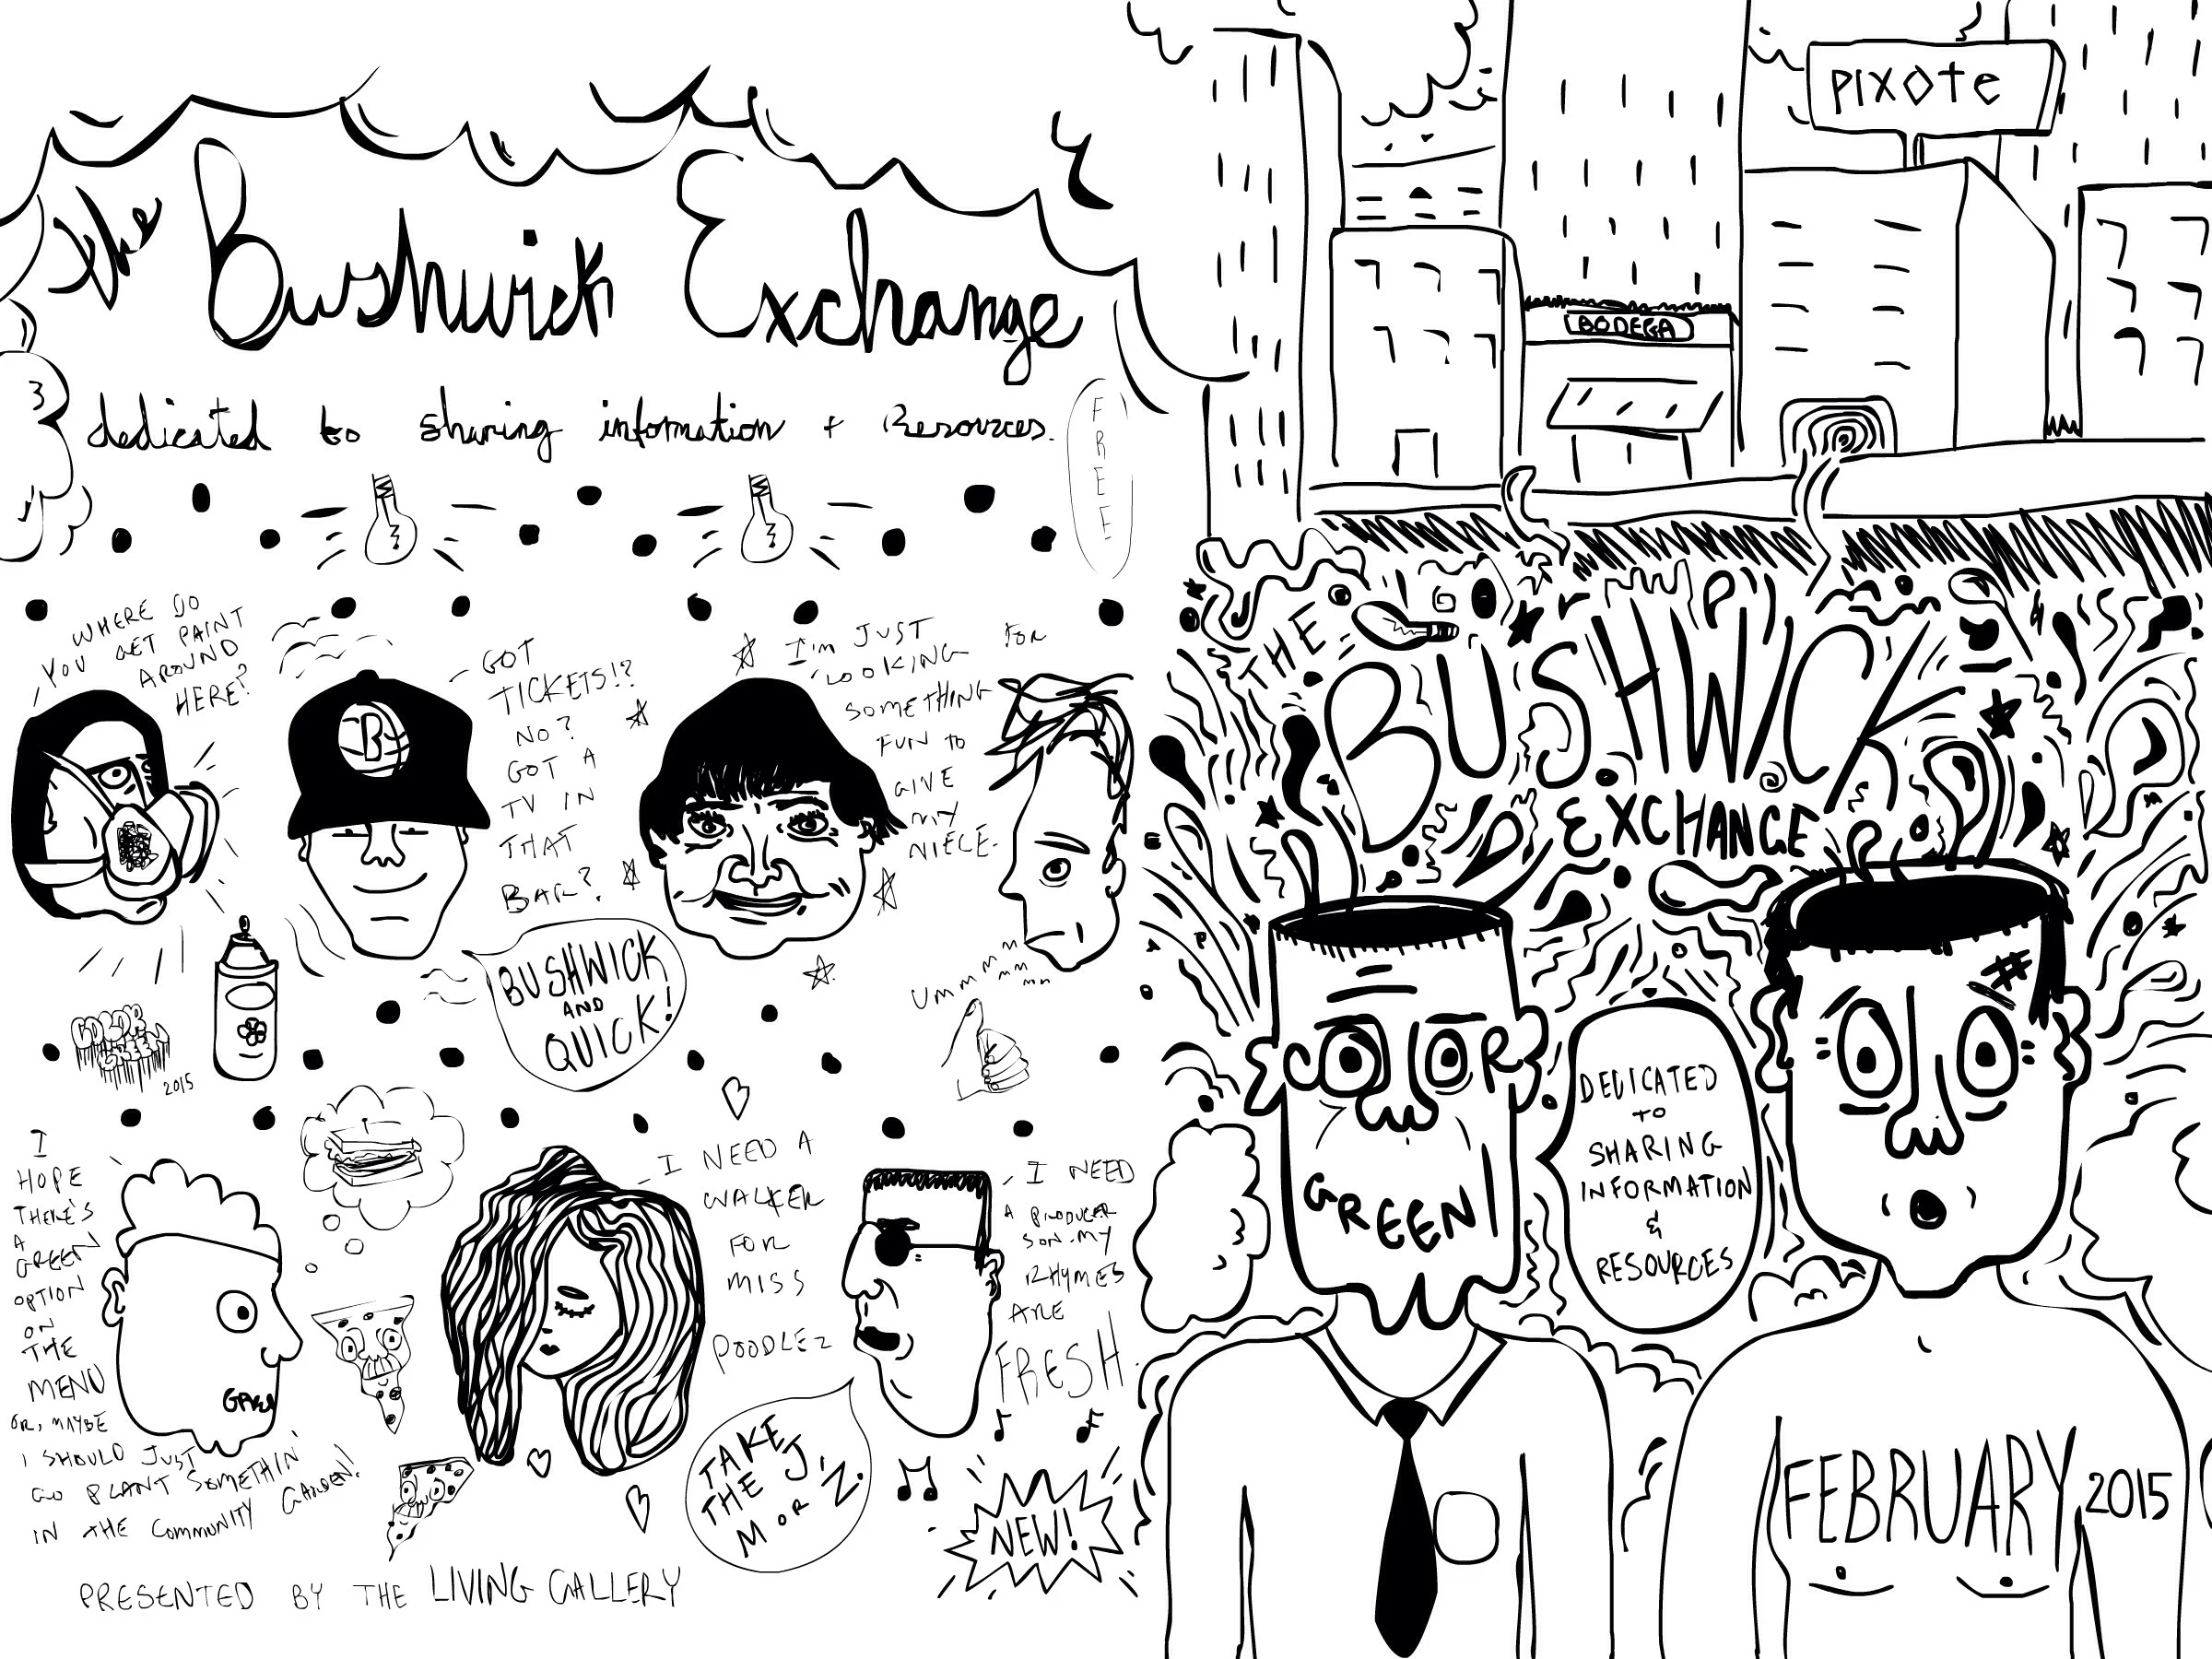 the Bushwick Exchange
dedicated to sharing information + Resources.
FREE
WHERE DO
YOU GET PAINT
AROUND
HERE?
B
GOT
TICKETS!?
NO?
GOT A
TV IN
THAT
BAR?
I'M JUST
LOOKING FOR
SOMETHING
FUN TO
GIVE
MY
NIECE.
Ummmmmmm
BUSHWICK
AND
QUICK!
COLOR
GREEN
2015
I
HOPE
THERE'S
A
GREEN
OPTION
ON
THE
MENU
OR, MAYBE
I SHOULD JUST
GO PLANT SOMETHIN'
IN THE COMMUNITY GARDEN!
I NEED A
WALKER
FOR
MISS
POODLEZ
I NEED
A PRODUCER
SON. MY
RHYMES
ARE
FRESH.
TAKE
THE J,
M or Z.
NEW!
PRESENTED BY THE LIVING GALLERY
PIXOTE
BODEGA
THE
BUSHWICK
EXCHANGE
COLOR
GREEN
#
DEDICATED
TO
SHARING
INFORMATION
&
RESOURCES
FEBRUARY 2015